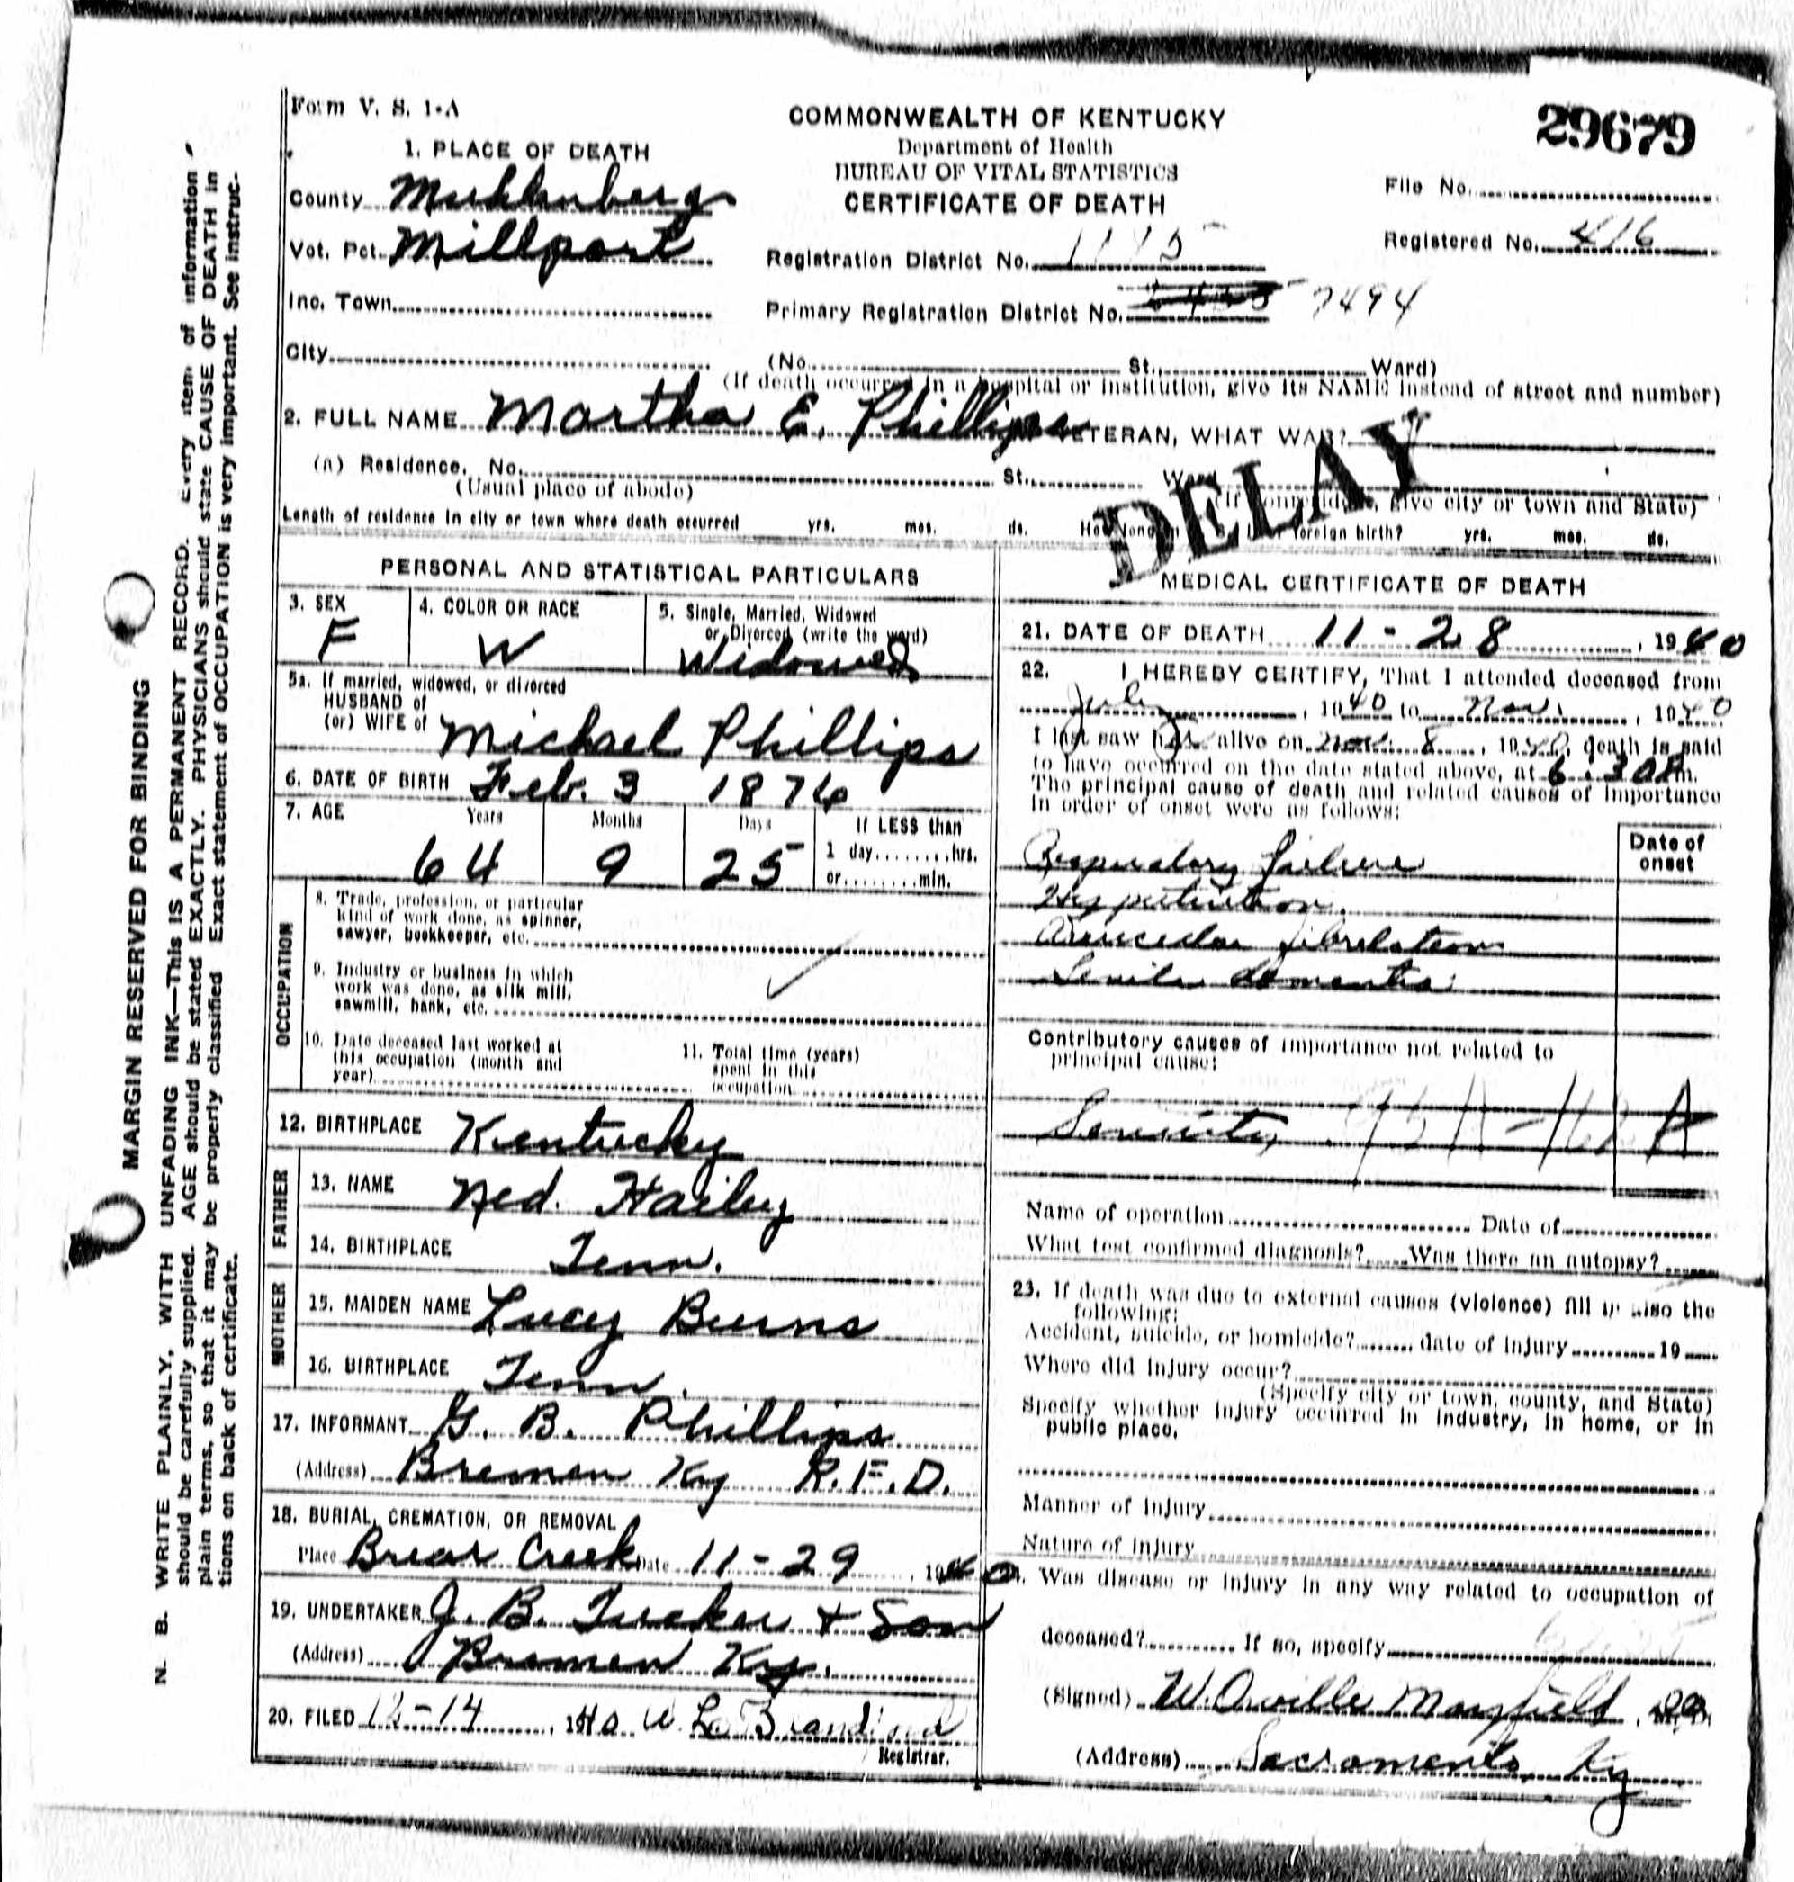 Form V. S. 1-A
COMMONWEALTH OF KENTUCKY
Department of Health
BUREAU OF VITAL STATISTICS
CERTIFICATE OF DEATH
29679
File No.
Registered No. 416
1. PLACE OF DEATH
County Muhlenberg
Vot. Pct. Millport
Inc. Town
City
Registration District No. 1175
Primary Registration District No. 7494
(No. St. Ward)
(If death occurred in a hospital or institution, give its NAME instead of street and number)
2. FULL NAME Martha E. Phillips VETERAN, WHAT WAR?
(a) Residence. No. St. Ward
(Usual place of abode) (If nonresident, give city or town and State)
Length of residence in city or town where death occurred yrs. mos. ds. How long in foreign birth? yrs. mos. ds.
DELAY
PERSONAL AND STATISTICAL PARTICULARS
3. SEX
F
4. COLOR OR RACE
W
5. Single, Married, Widowed
or Divorced (write the word)
Widowed
5a. If married, widowed, or divorced
HUSBAND of
(or) WIFE of Michael Phillips
6. DATE OF BIRTH Feb. 3 1876
7. AGE Years Months Days If LESS than
64 9 25 1 day hrs.
or min.
OCCUPATION
8. Trade, profession, or particular
kind of work done, as spinner,
sawyer, bookkeeper, etc.
9. Industry or business in which
work was done, as silk mill,
sawmill, bank, etc.
10. Date deceased last worked at
this occupation (month and
year)
11. Total time (years)
spent in this
occupation
12. BIRTHPLACE Kentucky
FATHER
13. NAME Ned. Hailey
14. BIRTHPLACE Tenn.
MOTHER
15. MAIDEN NAME Lucy Burns
16. BIRTHPLACE Tenn.
17. INFORMANT G. B. Phillips
(Address) Bremen Ky R.F.D.
18. BURIAL, CREMATION, OR REMOVAL
Place Briar Creek Date 11-29, 1940
19. UNDERTAKER J. B. Tucker + Son
(Address) Bremen Ky.
20. FILED 12-14, 1940 W. L.
Registrar.
MEDICAL CERTIFICATE OF DEATH
21. DATE OF DEATH 11-28, 1940
22. I HEREBY CERTIFY, That I attended deceased from
July, 1940 to Nov., 1940
I last saw her alive on Nov. 8, 1940, death is said
to have occurred on the date stated above, at 6:30 m.
The principal cause of death and related causes of importance
in order of onset were as follows:
Date of
onset
Respiratory failure
Hypertention.
Auricular fibrelation
Senile dementia
Contributory causes of importance not related to
principal cause:
Senility
Name of operation Date of
What test confirmed diagnosis? Was there an autopsy?
23. If death was due to external causes (violence) fill in also the
following:
Accident, suicide, or homicide? date of injury 19
Where did injury occur?
(Specify city or town, county, and State)
Specify whether injury occurred in industry, in home, or in
public place.
Manner of injury
Nature of injury
Was disease or injury in any way related to occupation of
deceased? If so, specify
(Signed) W. Orville Mayfield, M.D.
(Address) Sacramento, Ky
MARGIN RESERVED FOR BINDING
N. B. WRITE PLAINLY, WITH UNFADING INK—THIS IS A PERMANENT RECORD. Every item of information
should be carefully supplied. AGE should be stated EXACTLY. PHYSICIANS should state CAUSE OF DEATH in
plain terms, so that it may be properly classified. Exact statement of OCCUPATION is very important. See instruc-
tions on back of certificate.